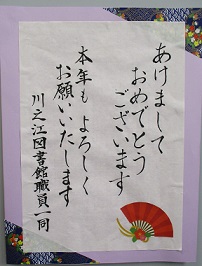 あけまして
おめでとう
ございます
本年も よろしく
お願いいたします
川之江図書館職員一同